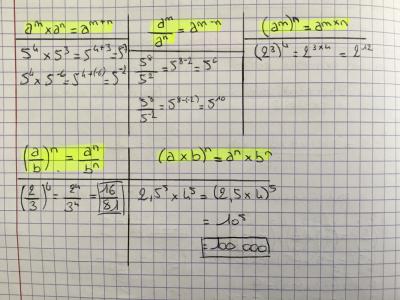 aᵐ × aⁿ = aᵐ⁺ⁿ
5⁴ × 5³ = 5⁴⁺³ = 5⁷
5⁴ × 5⁻⁶ = 5⁴⁺⁽⁻⁶⁾ = 5⁻²
aᵐ/aⁿ = aᵐ⁻ⁿ
5⁸/5² = 5⁸⁻² = 5⁶
5⁸/5⁻² = 5⁸⁻⁽⁻²⁾ = 5¹⁰
(aᵐ)ⁿ = aᵐˣⁿ
(2³)⁴ = 2³ˣ⁴ = 2¹²
(a/b)ⁿ = aⁿ/bⁿ
(2/3)⁴ = 2⁴/3⁴ = 16/81
(a × b)ⁿ = aⁿ × bⁿ
2,5⁵ × 4⁵ = (2,5 × 4)⁵
= 10⁵
= 100 000